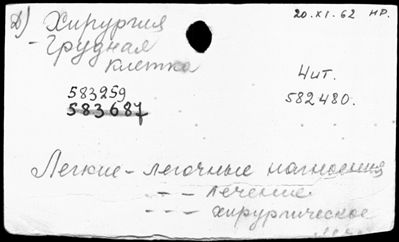 Д) Хирургия 20.XI.62 НР.
- Грудная
клетка
Чит.
583259
583687
582480.
Легкие - легочные нагноения
- - - лечение
- - - хирургическое